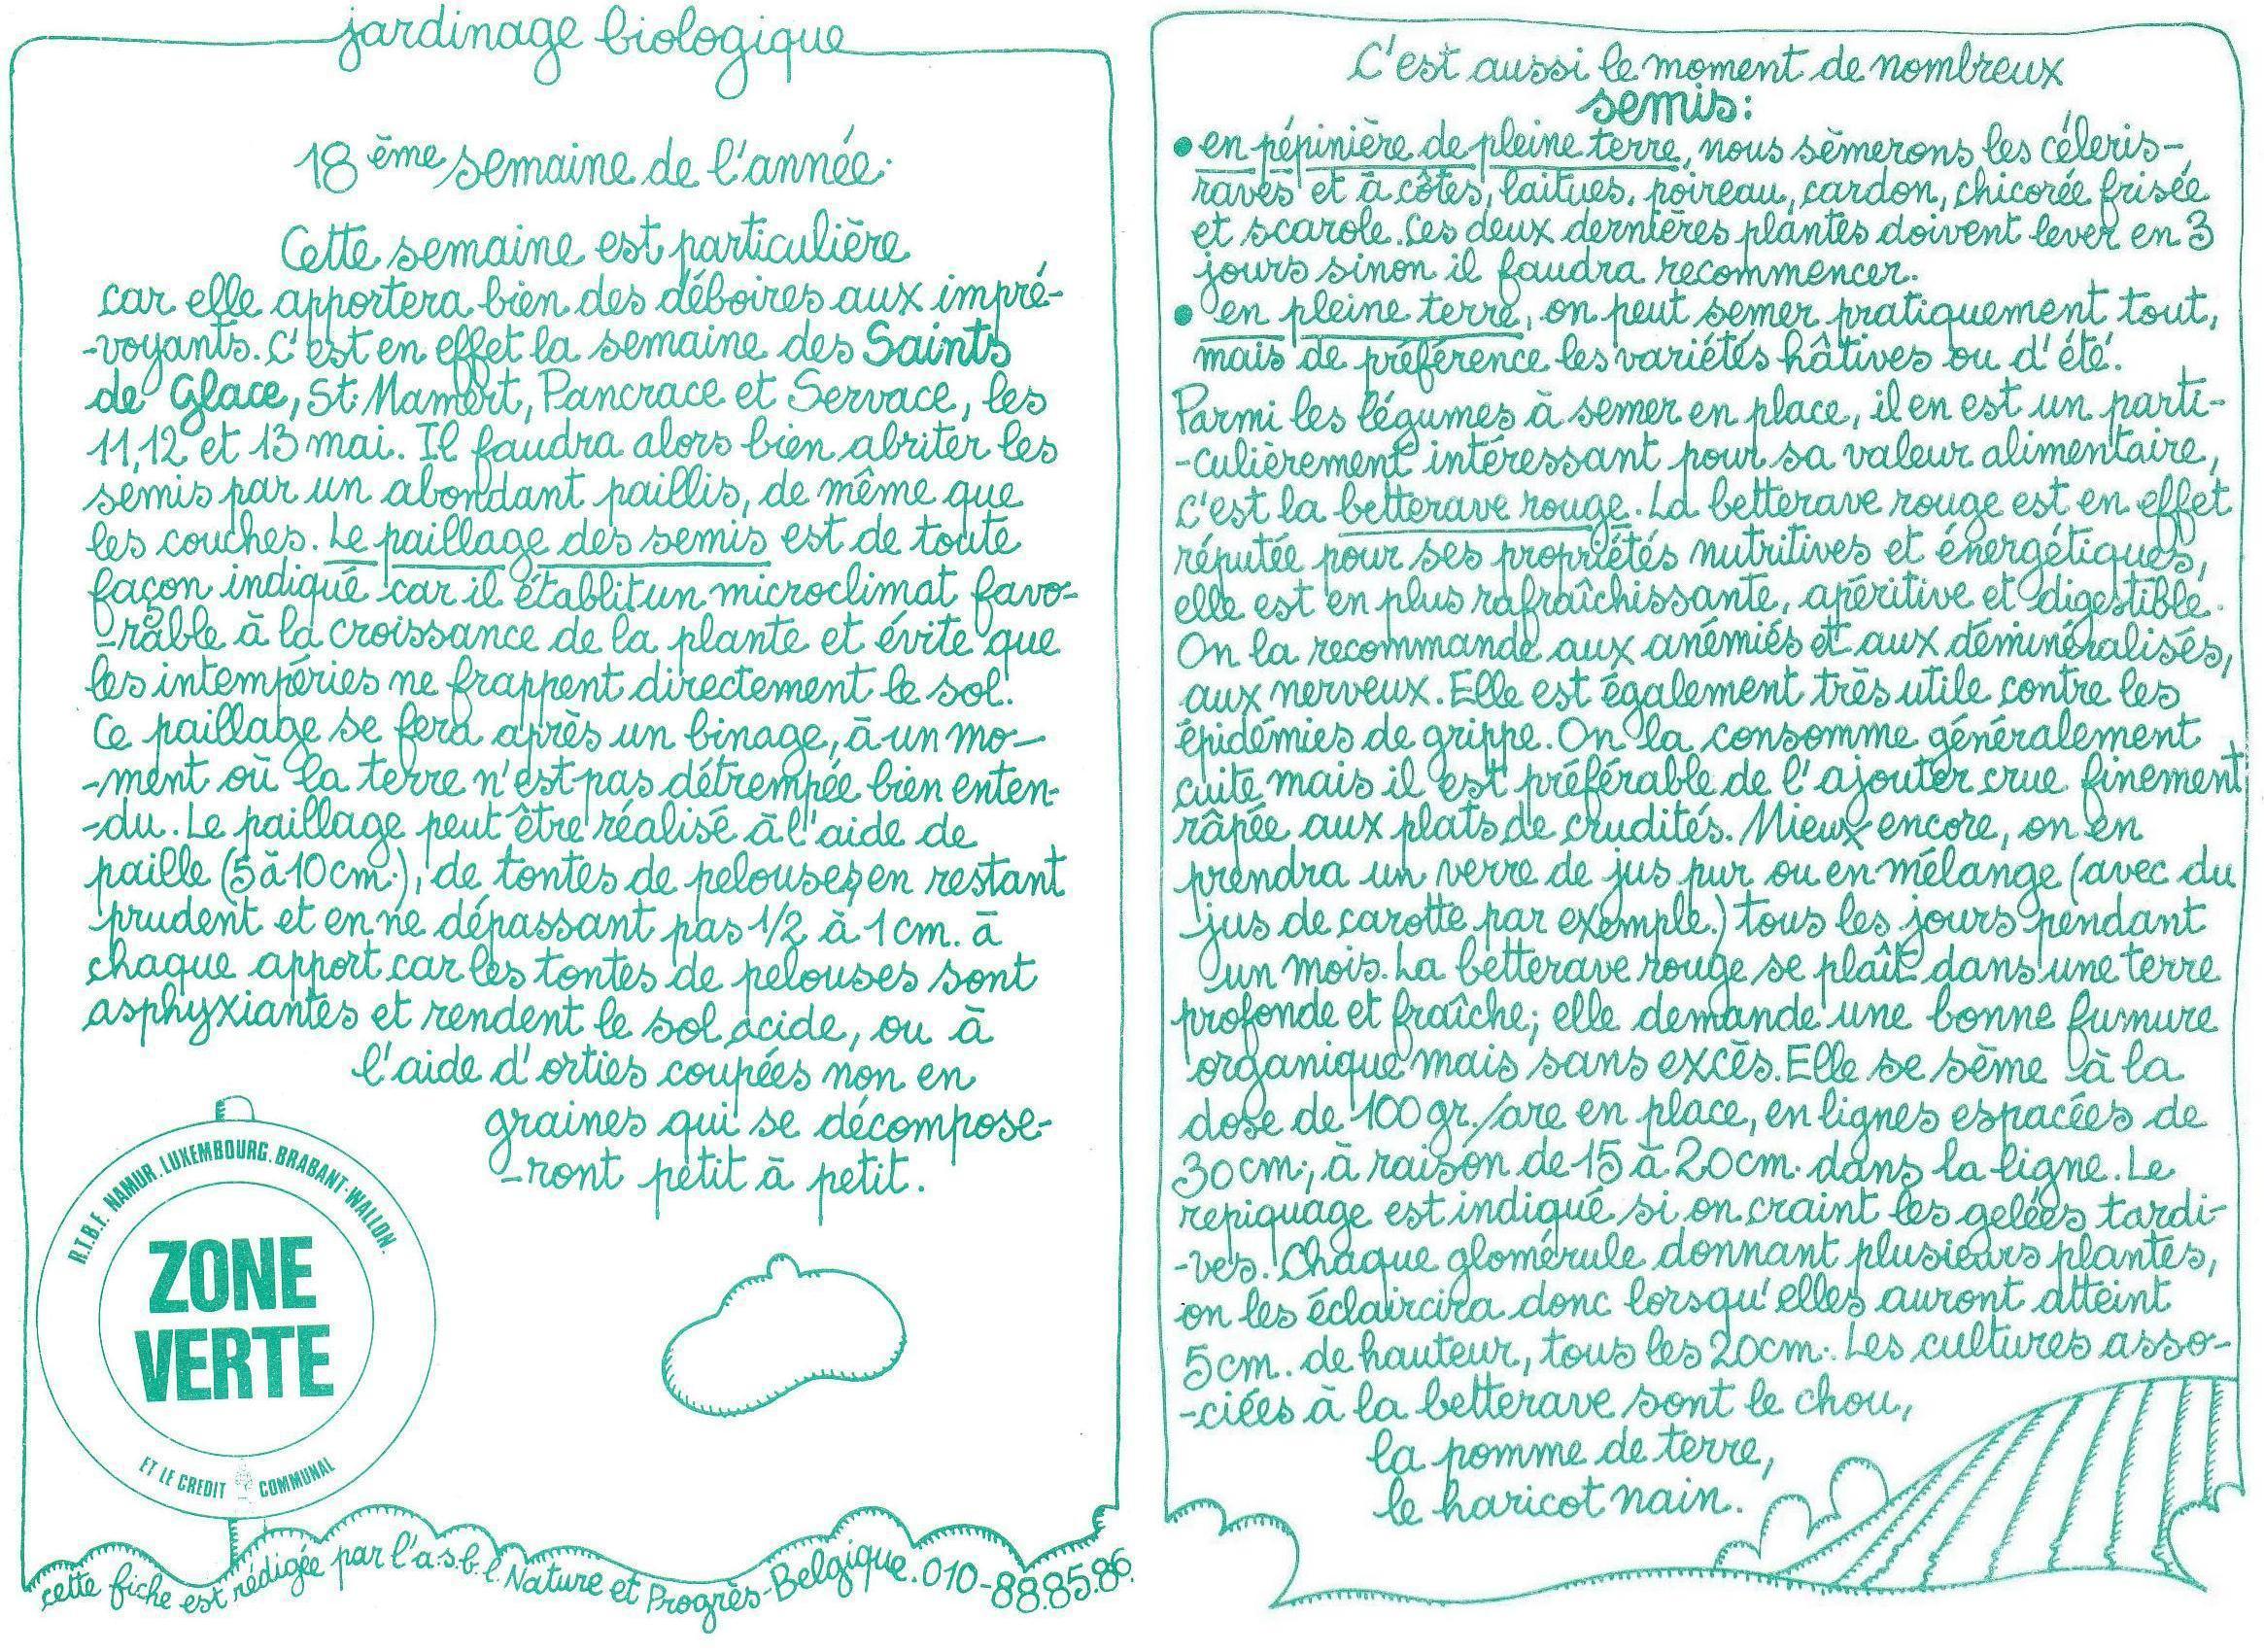 jardinage biologique
18ème semaine de l'année.
Cette semaine est particulière
car elle apportera bien des déboires aux impré-
-voyants. C'est en effet la semaine des Saints
de Glace, St. Mamert, Pancrace et Servace, les
11,12 et 13 mai. Il faudra alors bien abriter les
semis par un abondant paillis, de même que
les couches. Le paillage des semis est de toute
façon indiqué car il établit un microclimat favo-
-rable à la croissance de la plante et évite que
les intempéries ne frappent directement le sol.
Ce paillage se fera après un binage, à un mo-
-ment où la terre n'est pas détrempée bien enten-
-du. Le paillage peut être réalisé à l'aide de
paille (5 à 10 cm.), de tontes de pelouses, en restant
prudent et en ne dépassant pas 1/2 à 1 cm. à
chaque apport car les tontes de pelouses sont
asphyxiantes et rendent le sol acide, ou à
l'aide d'orties coupées non en
graines qui se décompose-
-ront petit à petit.
R.T.B.F. NAMUR. LUXEMBOURG. BRABANT-WALLON.
ZONE
VERTE
ET LE CREDIT COMMUNAL
cette fiche est rédigée par l'a.s.b.l. Nature et Progrès-Belgique. 010-88.85.86.
C'est aussi le moment de nombreux
semis:
• en pépinière de pleine terre, nous sèmerons les céleris-
raves et à côtes, laitues, poireau, cardon, chicorée frisée
et scarole. Ces deux dernières plantes doivent lever en 3
jours sinon il faudra recommencer.
• en pleine terre, on peut semer pratiquement tout,
mais de préférence les variétés hâtives ou d'été.
Parmi les légumes à semer en place, il en est un parti-
-culièrement intéressant pour sa valeur alimentaire,
c'est la betterave rouge. La betterave rouge est en effet
réputée pour ses propriétés nutritives et énergétiques,
elle est en plus rafraîchissante, apéritive et digestible.
On la recommande aux anémiés et aux déminéralisés,
aux nerveux. Elle est également très utile contre les
épidémies de grippe. On la consomme généralement
cuite mais il est préférable de l'ajouter crue finement
râpée aux plats de crudités. Mieux encore, on en
prendra un verre de jus pur ou en mélange (avec du
jus de carotte par exemple.) tous les jours pendant
un mois. La betterave rouge se plaît dans une terre
profonde et fraîche; elle demande une bonne fumure
organique mais sans excès. Elle se sème à la
dose de 100 gr./are en place, en lignes espacées de
30 cm; à raison de 15 à 20 cm. dans la ligne. Le
repiquage est indiqué si on craint les gelées tardi-
-ves. Chaque glomérule donnant plusieurs plantes,
on les éclaircira donc lorsqu'elles auront atteint
5 cm. de hauteur, tous les 20 cm. Les cultures asso-
-ciées à la betterave sont le chou,
la pomme de terre,
le haricot nain.